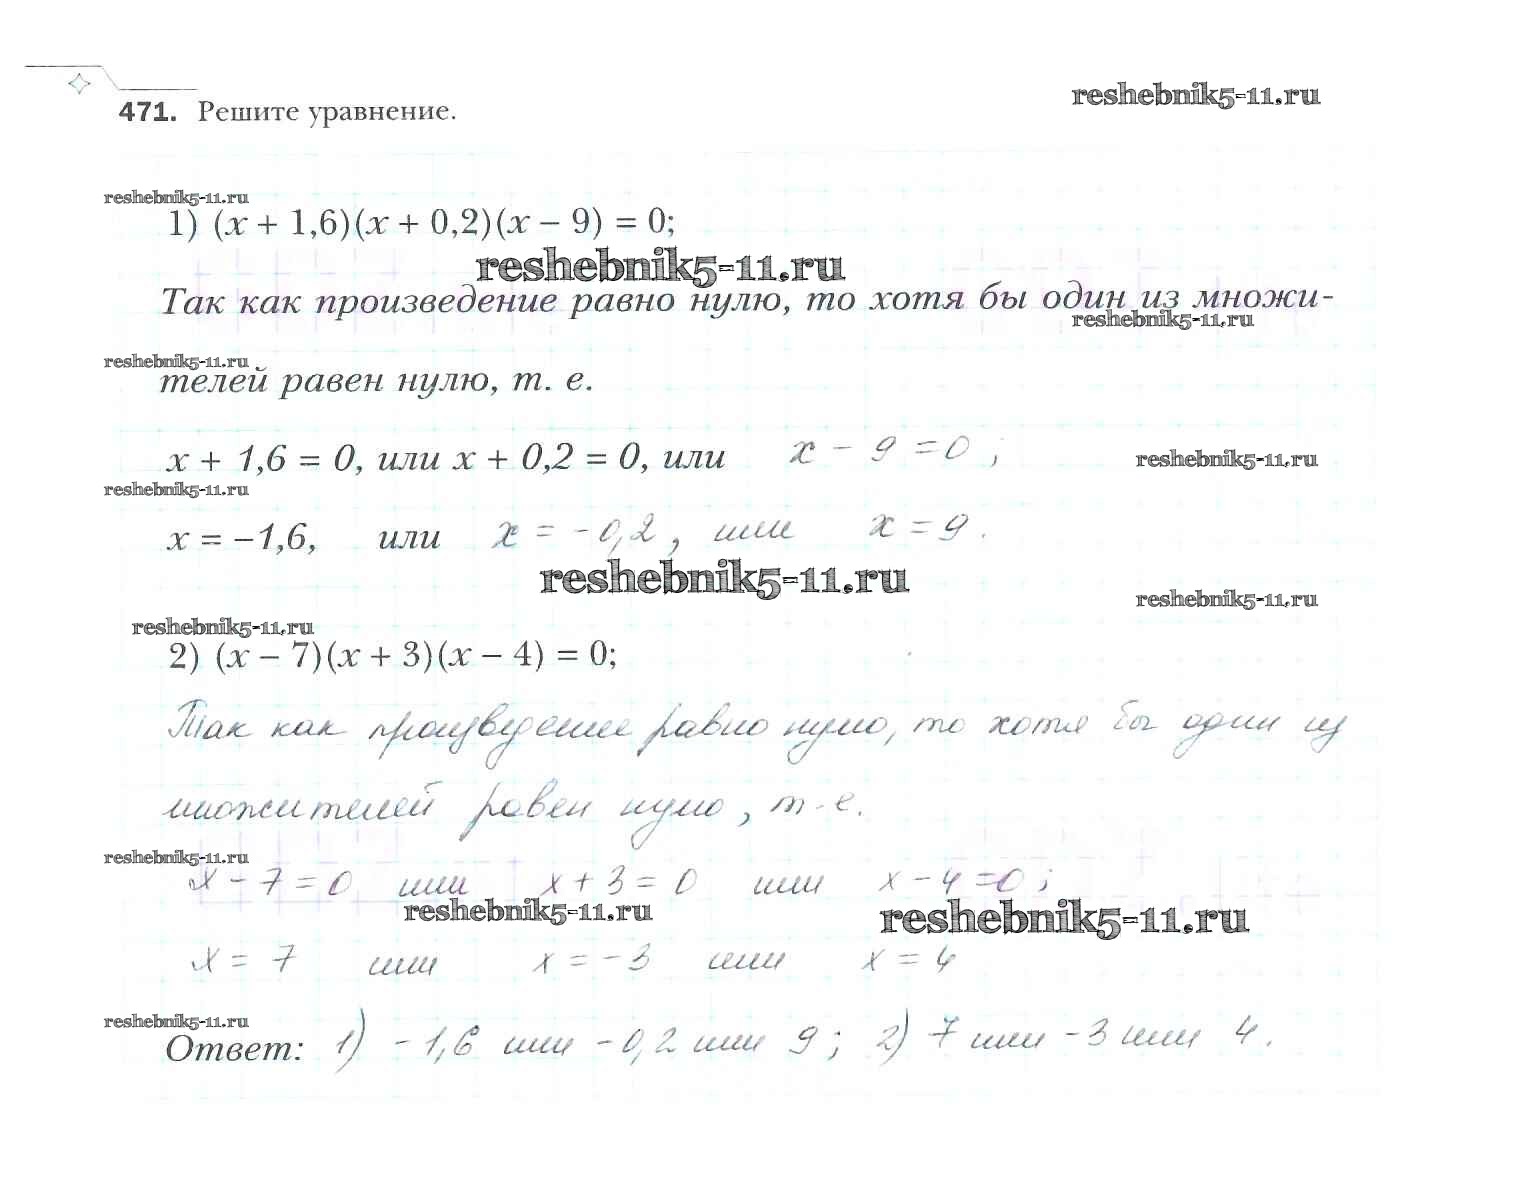 471. Решите уравнение.
reshebnik5-11.ru
reshebnik5-11.ru
1) (x + 1,6)(x + 0,2)(x − 9) = 0;
reshebnik5-11.ru
Так как произведение равно нулю, то хотя бы один из множи-
reshebnik5-11.ru
reshebnik5-11.ru
телей равен нулю, т. е.
x + 1,6 = 0, или x + 0,2 = 0, или x − 9 = 0;
reshebnik5-11.ru
reshebnik5-11.ru
x = −1,6, или x = −0,2, или x = 9.
reshebnik5-11.ru
reshebnik5-11.ru
reshebnik5-11.ru
2) (x − 7)(x + 3)(x − 4) = 0;
Так как произведение равно нулю, то хотя бы один из
множителей равен нулю, т.е.
reshebnik5-11.ru
x − 7 = 0 или x + 3 = 0 или x − 4 = 0;
reshebnik5-11.ru
reshebnik5-11.ru
x = 7 или x = −3 или x = 4
reshebnik5-11.ru
Ответ: 1) −1,6 или −0,2 или 9; 2) 7 или −3 или 4.